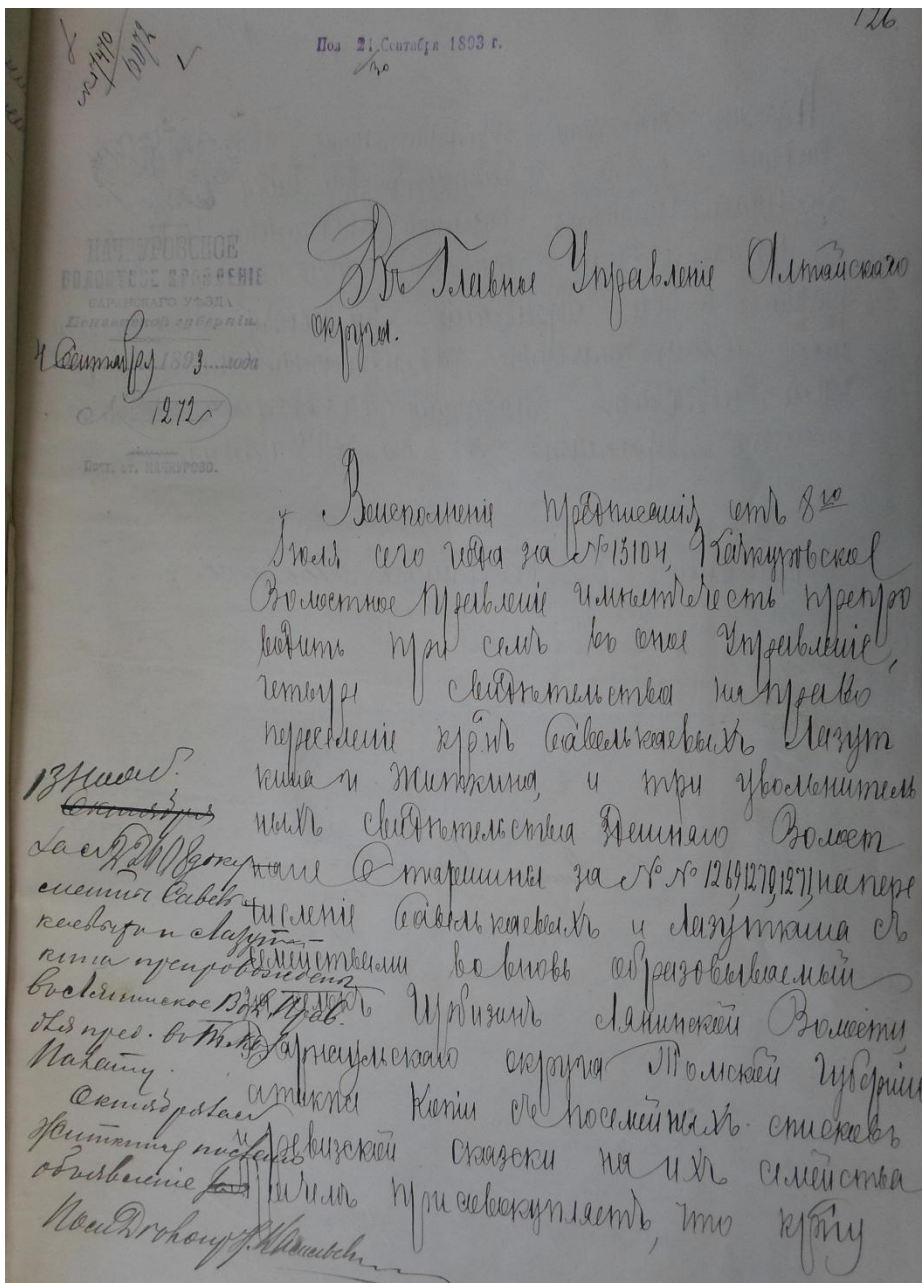 126.
Пол 21 Сентября 1893 г.
КАЧКУРОВСКОЕ
ВОЛОСТНОЕ ПРАВЛЕНІЕ
САРАНСКАГО УѢЗДА
Пензенской губерніи.
4 Сентября 1893 года
№ 1272
Почт. ст. КАЧКУРОВО.
Въ Главное Управленіе Алтайскаго
округа.
Воисполненіе предписанія отъ 8го
Іюля сего года за № 13104, Качкуровское
Волостное Правленіе имѣетъ честь препро
водить при семъ во оное Управленіе,
четыре свидѣтельства на право
переселеніе кр-нъ Савелькаевыхъ Лазут
кина и Житкина, и три увольнитель
ныхъ свидѣтельства здешняго Волост
наго Старшины за №№ 1269, 1270, 1271, на пере
численіе Савелькаевыхъ и Лазуткина съ
семействами во вновь образовываемый
Урбизанъ Лянинской Волости,
Барнаульскаго округа Томской Губерніи
атакже Копіи съ посемейныхъ списковъ
и ревизской сказски на ихъ семейства
причемъ присовокупляетъ, что кр-ну
13 Нояб.
Октября
за № 22608 доку
менты Савель
каевыхъ и Лазут
кина препровождены
въ Лянинское Вол. Прав.
для пред. въ Т. Каз.
Палату.
Октября за №
Житкину послано
объявленіе